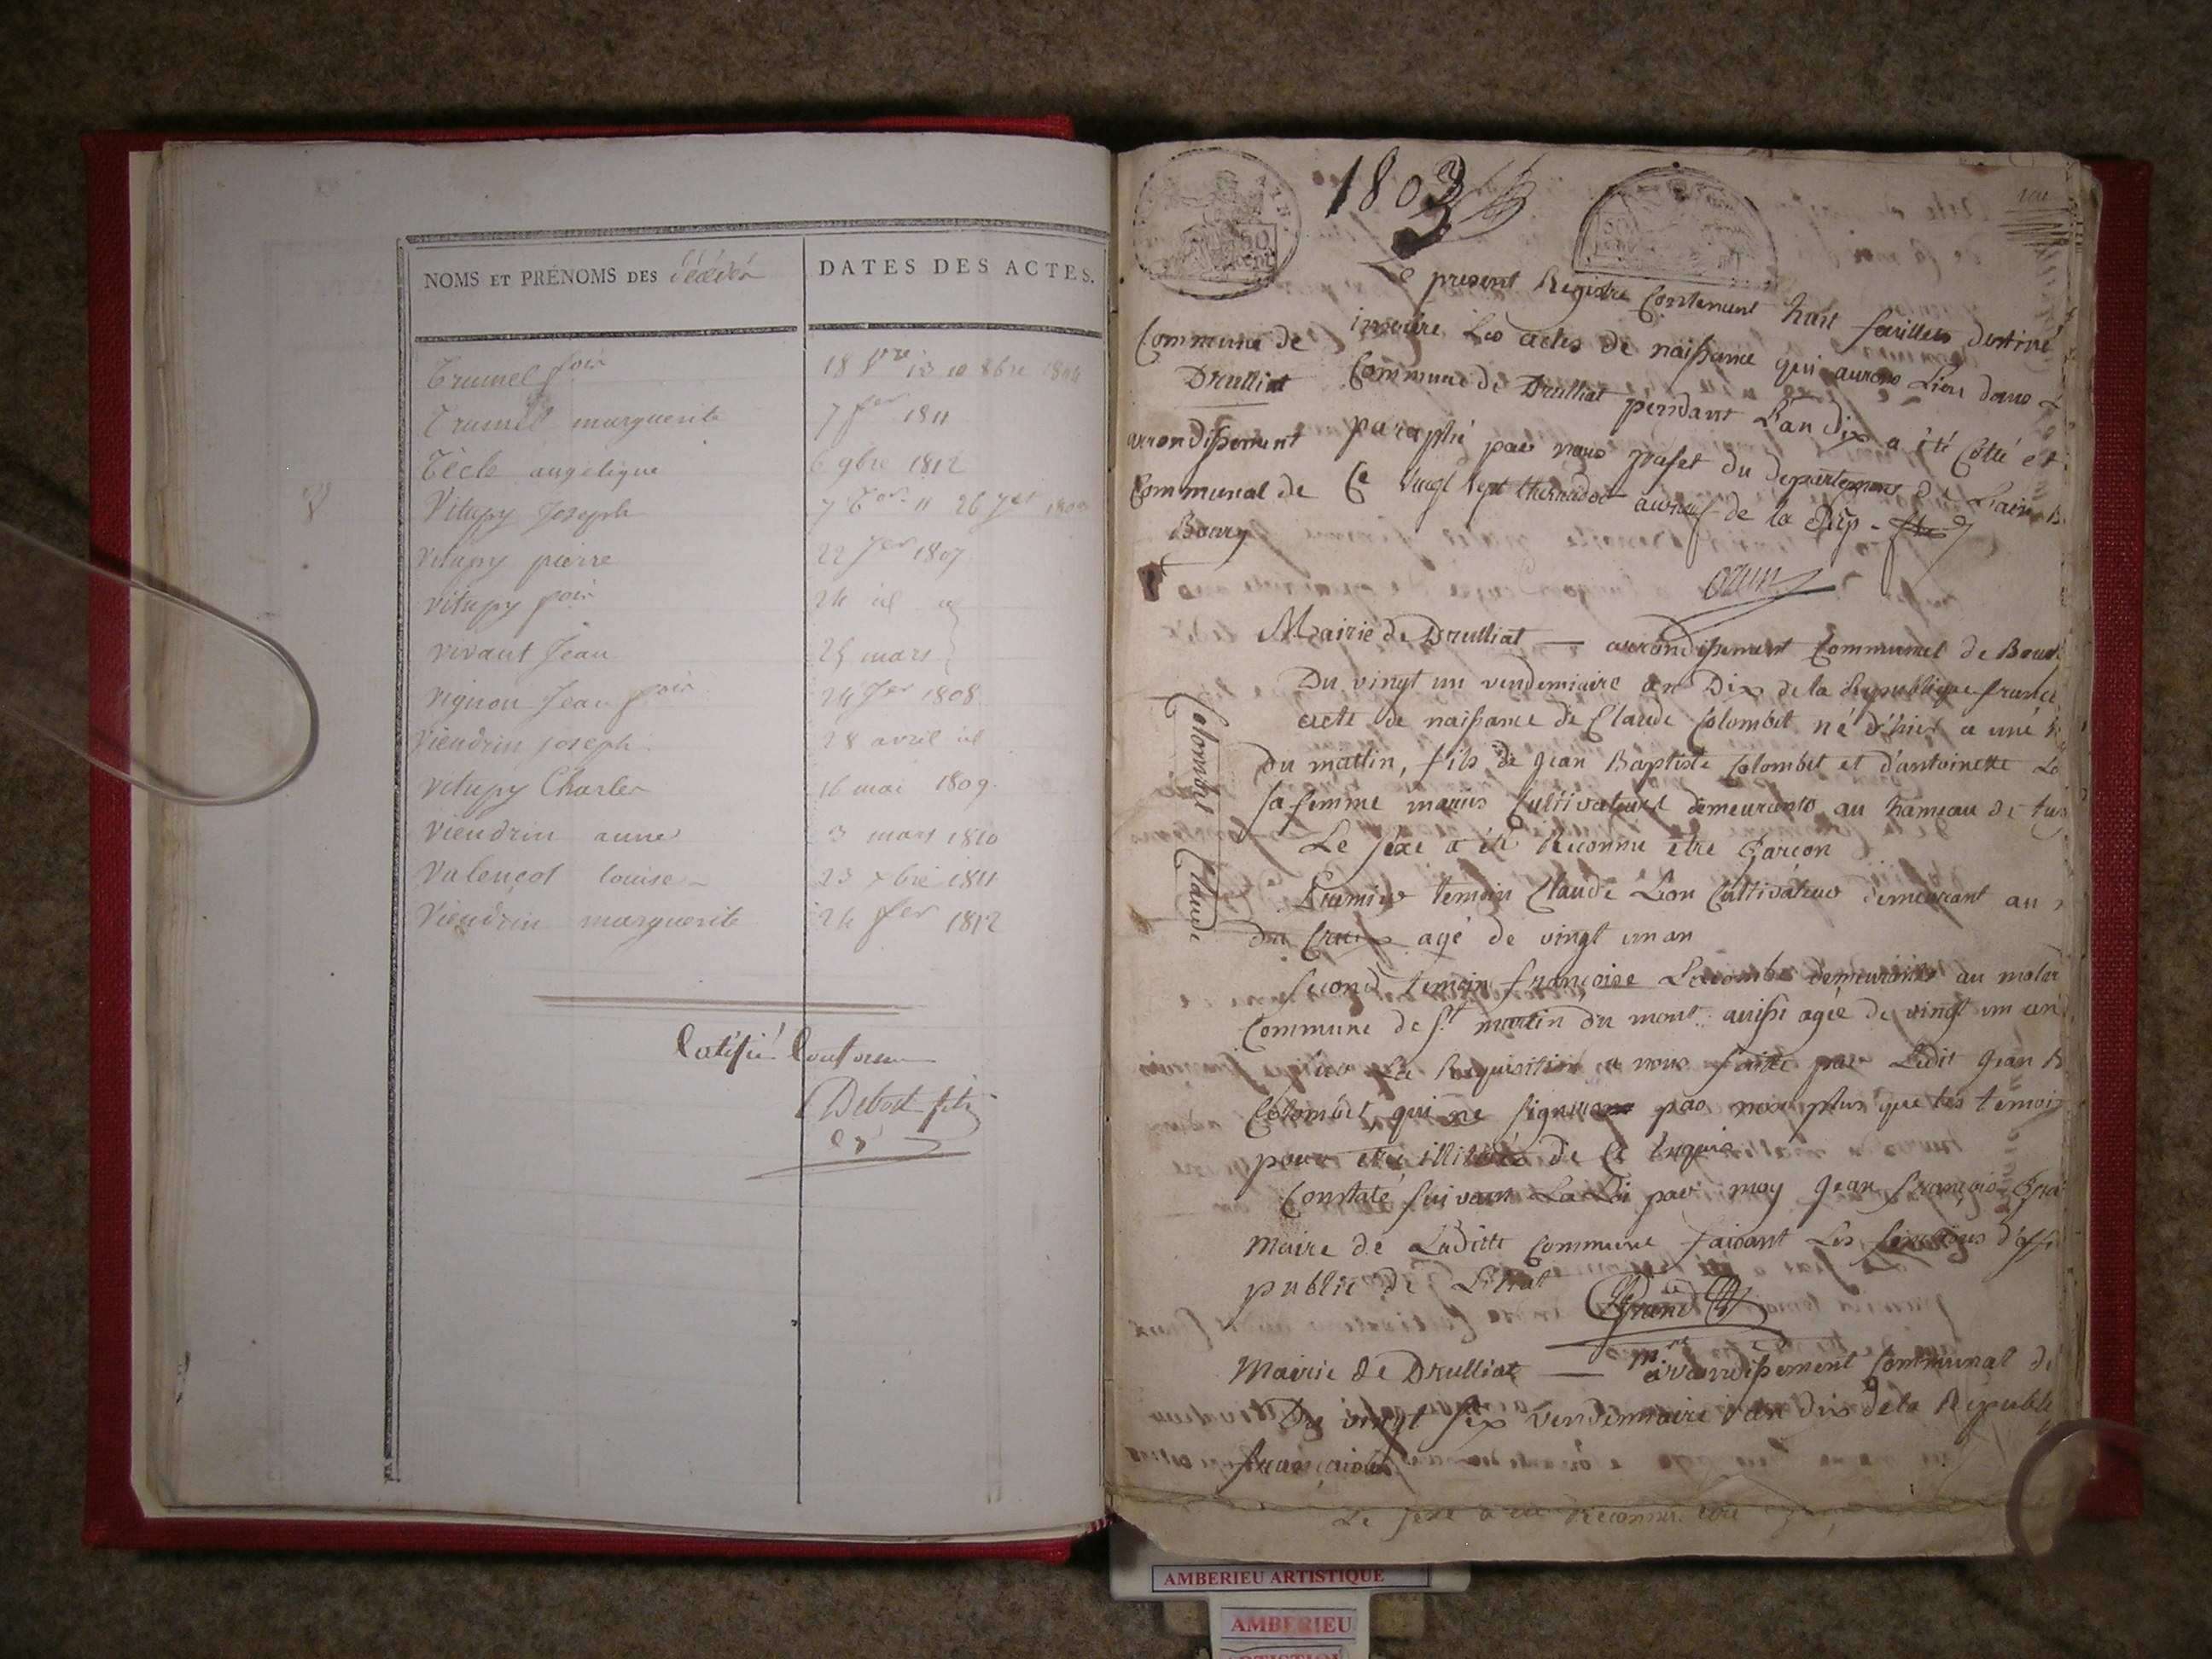 NOMS ET PRÉNOMS DES décédés
DATES DES ACTES.
Trumel fois
18
Trumel marguerite
7 fer 1811
Tècle angélique
6 9bre 1812
V
Vitupy Joseph
Vitupy pierre
22 Jer 1807
Vitupy fois
24 id id
Vivant Jean
25 mars
Vignon Jean fois
24 Jer 1808
Viendrin joseph
28 avril id
Vitupy Charles
16 mai 1809.
Viendrin anne
3 mars 1810
Valençot louise
23 xbre 1811
Viendrin marguerite
24 fer 1812
Certifié Conforme
Debost fils
1803
Le present Registre Contenant huit feuillets destiné
inscrire Les actes de naissance qui auront Lieu dans L
Commune de Druilliat pendant L'an Dix a été Coté et
paraphé par nous prefet du departement de L'ain
Ce vingt sept thermidor an neuf de la Rép.
Commune de
Druilliat
arrondissement
Communal de
Bourg
1er
Mairie de Druilliat — arrondissement Communal de Bour
Colombet Claude
Du vingt un vendemiaire an Dix de la Republique franc
acte de naissance de Claude Colombet né d'hier a une h
du mattin, fils de Jean Baptiste Colombet et d'antoinette Lo
sa femme mariés Cultivateurs demeurants au hameau de tur
Le sexe a été Reconnu etre Garçon
Premier temoin Claude Lion Cultivateur demeurant au
du Creux agé de vingt un an
second temoin françoise Lacombe demeurante au molar
Commune de St martin du mont aussi agée de vingt un an
sur La Requisition a nous faitte par Ledit Jean B
Colombet, qui ne signe pas non plus que les temoins
pour etre illitérés de Ce Enquis
Constaté suivant La Loi par moy Jean françois Gra
Maire de Laditte Commune faisant Les fonctions d'offi
public de L'Etat
Grand
mre
Mairie de Druilliat — arrondissement Communal de
Du vingt six vendemiaire an dix de la Republi
française
Le sexe a été Reconnu etre
AMBERIEU ARTISTIQUE
AMBERIEU
ARTISTIQUE